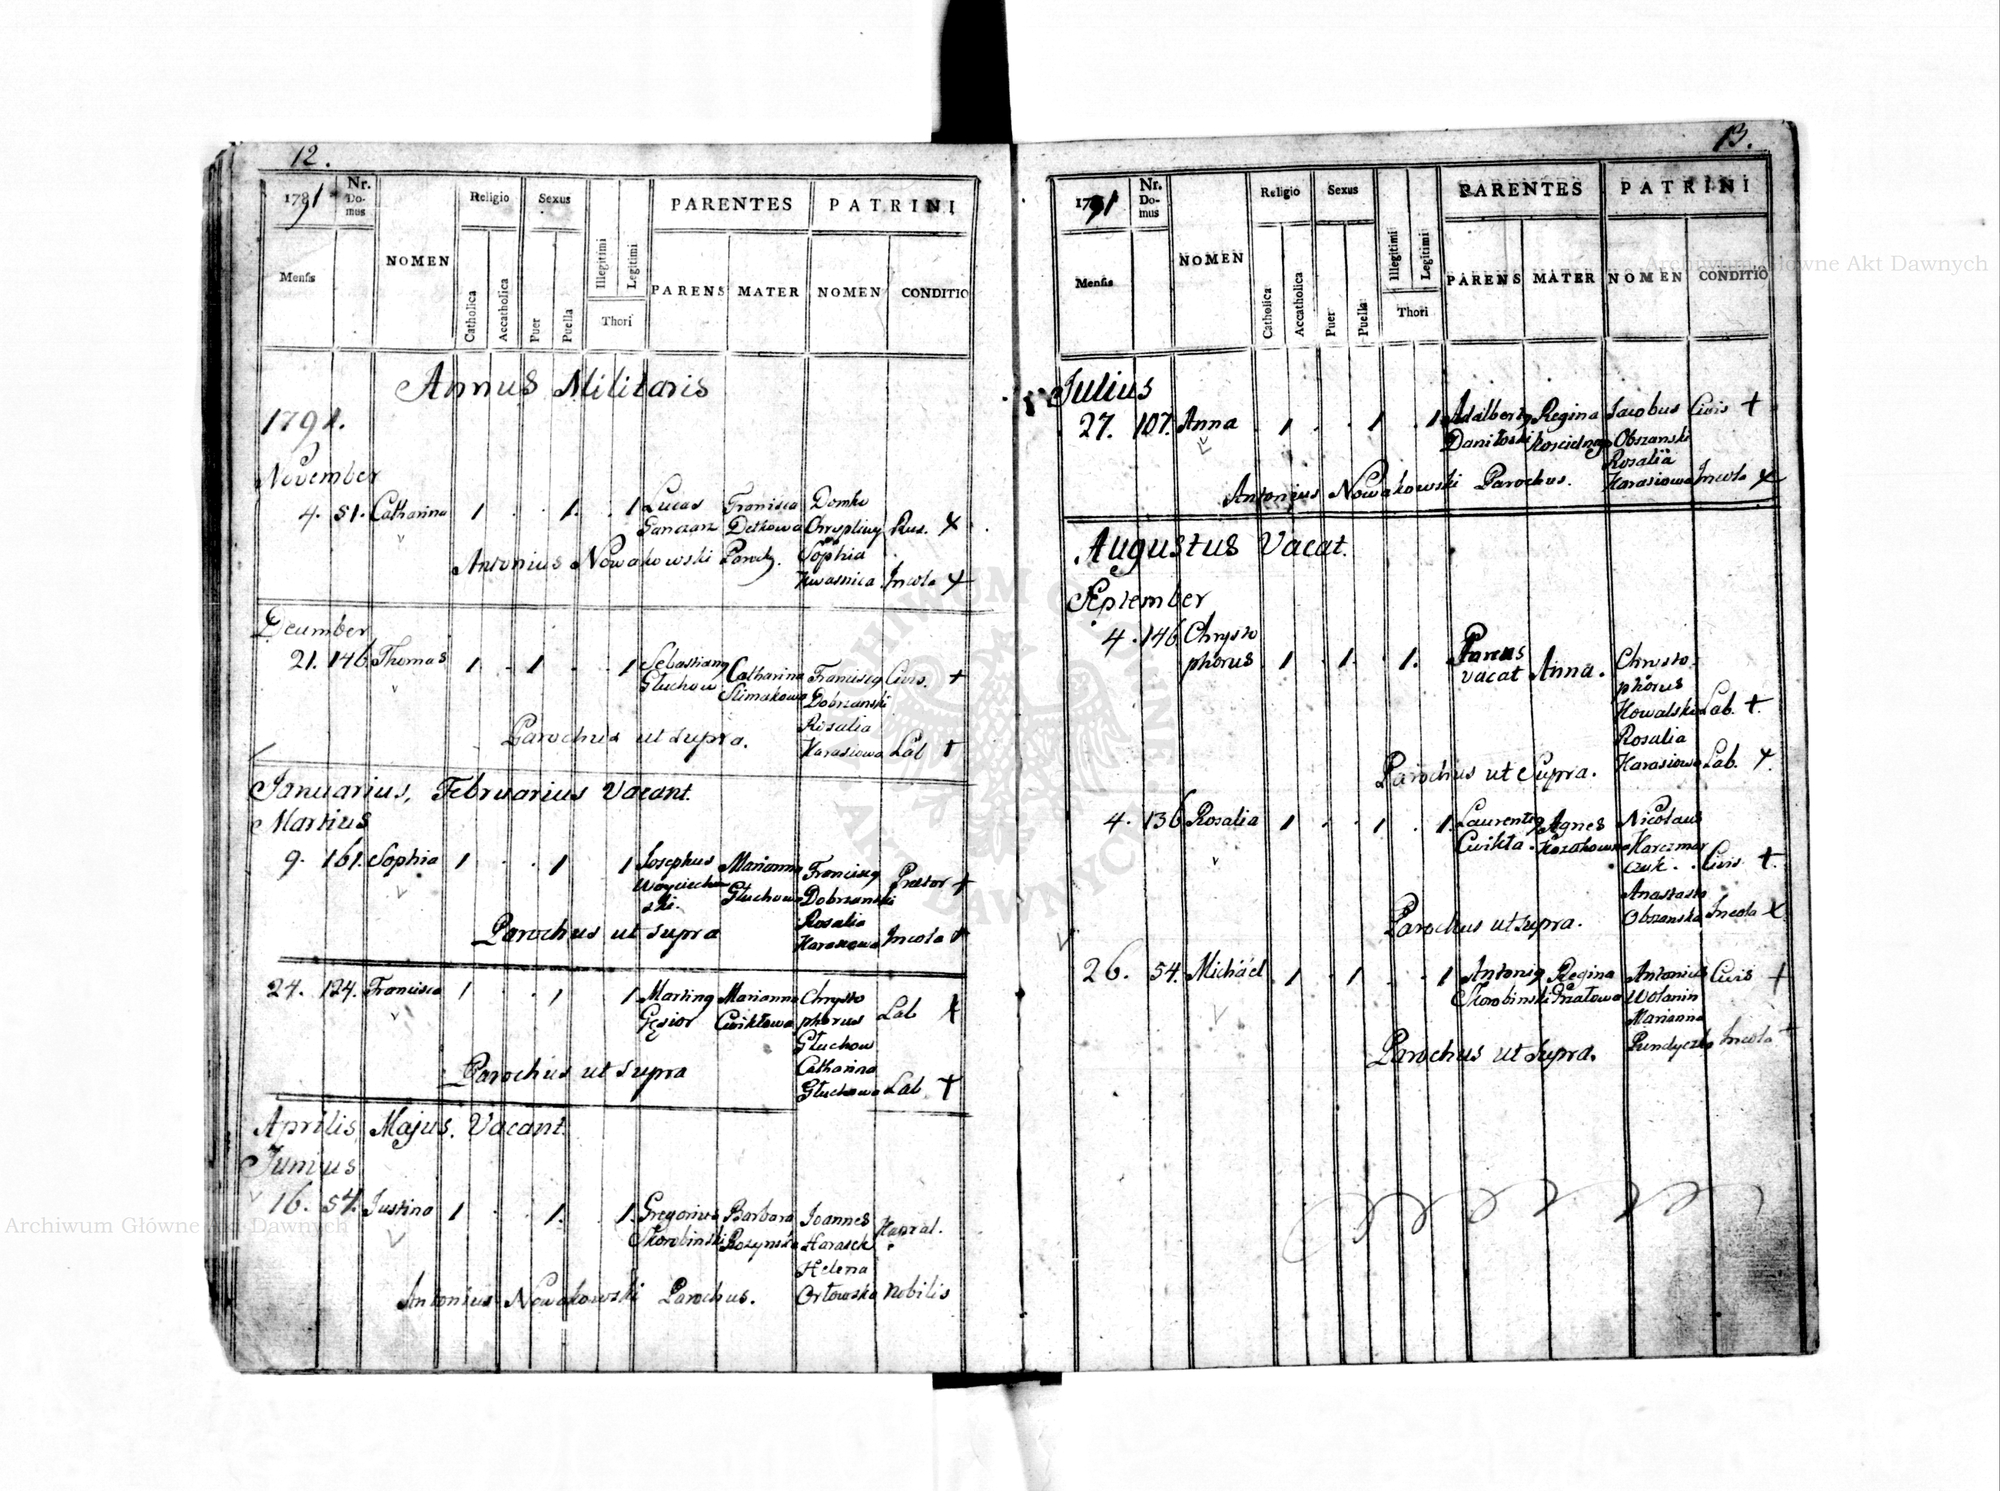 12.
1791
Nr. Domus
NOMEN
Religio
Sexus
PARENTES
PATRINI
Mensis
Catholica
Accatholica
Puer
Puella
Illegitimi
Legitimi
Thori
PARENS
MATER
NOMEN
CONDITIO
Annus Militaris
1791.
November
4. 51. Catharina 1 . . 1. . 1 Lucas Francisca Domko
Ganczarz Detkowa Chrypliwy Rus. +
Antonius Nowakowski Paroch. Sophia
Kwasnica Incola +
December
21. 146 Thomas 1 . 1 . . 1 Sebastiang Catharina Franciscg Civis. +
Głuchow Slimakowa Dobrzanski
Parochus ut supra. Rosalia
Karasiowa Lab +
Januarius, Februarius Vacant.
Martius
9. 161. Sophia 1 . . 1 1 Josephus Marianna Franciscg Prætor +
Woyciechowski. Głuchowa Dobrzanski
Parochus ut supra Rosalia
Karasiowa Incola +
24. 124. Francisca 1 . . 1 1 Marting Marianna Chrysto
Gęsior Cwikłowa phorus Lab +
Głuchow
Parochus ut supra Catharina
Głuchowa Lab +
Aprilis, Majus. Vacant.
Junius
16. 54. Justina 1 . . 1. . 1. Gregorius Barbara Joannes Kapral.
Skorobinski Harasek
Helena
Antonius Nowakowski Parochus. Orłowska Nobilis
13.
1791
Nr. Domus
NOMEN
Religio
Sexus
PARENTES
PATRINI
Mensis
Catholica
Accatholica
Puer
Puella
Illegitimi
Legitimi
Thori
PARENS
MATER
NOMEN
CONDITIO
Julius
27. 107. Anna . 1 . . 1 . 1 Adalbertg Regina Jacobus Civis +
Daniłoski Koscielnego Obszanski
Rosalia
Antonius Nowakowski Parochus. Karasiowa Incola +
Augustus Vacat.
September
4. 146 Chrysto
phorus 1 . 1. 1. Parens vacat Anna. Chrysto
phorus
Kowalski Lab. +
Rosalia
Parochus ut Supra. Karasiowa Lab. +
4. 136 Rosalia 1 . . 1 . 1. Laurentig Agnes Nicolaus
Cwikła. Kozakowna Karczmar
czuk. Civis +
Anastasia
Parochus ut supra. Obszanska Incola +
26. 54. Micháel 1 . 1 . . 1 Antonig Regina Antonius Civis +
Skorobinski Wolanin
Marianna
Parochus ut supra. Incola +
Archiwum Główne Akt Dawnych
Archiwum Główne Akt Dawnych
ARCHIWUM GŁÓWNE AKT DAWNYCH